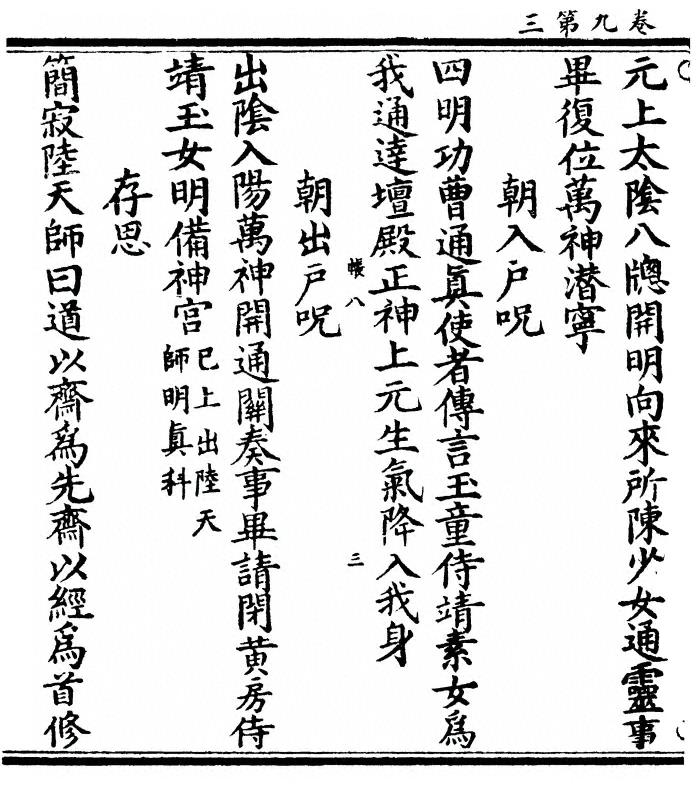 三第九卷
元上太陰八牎開明向來所陳少女通靈事
畢復位萬神潜寧
朝入戶呪
四明功曹通眞使者傳言玉童侍靖素女爲
我通達壇殿正神上元生氣降入我身
帳八 三
朝出戶呪
出陰入陽萬神開通關奏事畢請閉黄房侍
靖玉女明備神宫
已上出陸天
師明眞科
存思
簡寂陸天師曰道以齋爲先齋以經爲首修